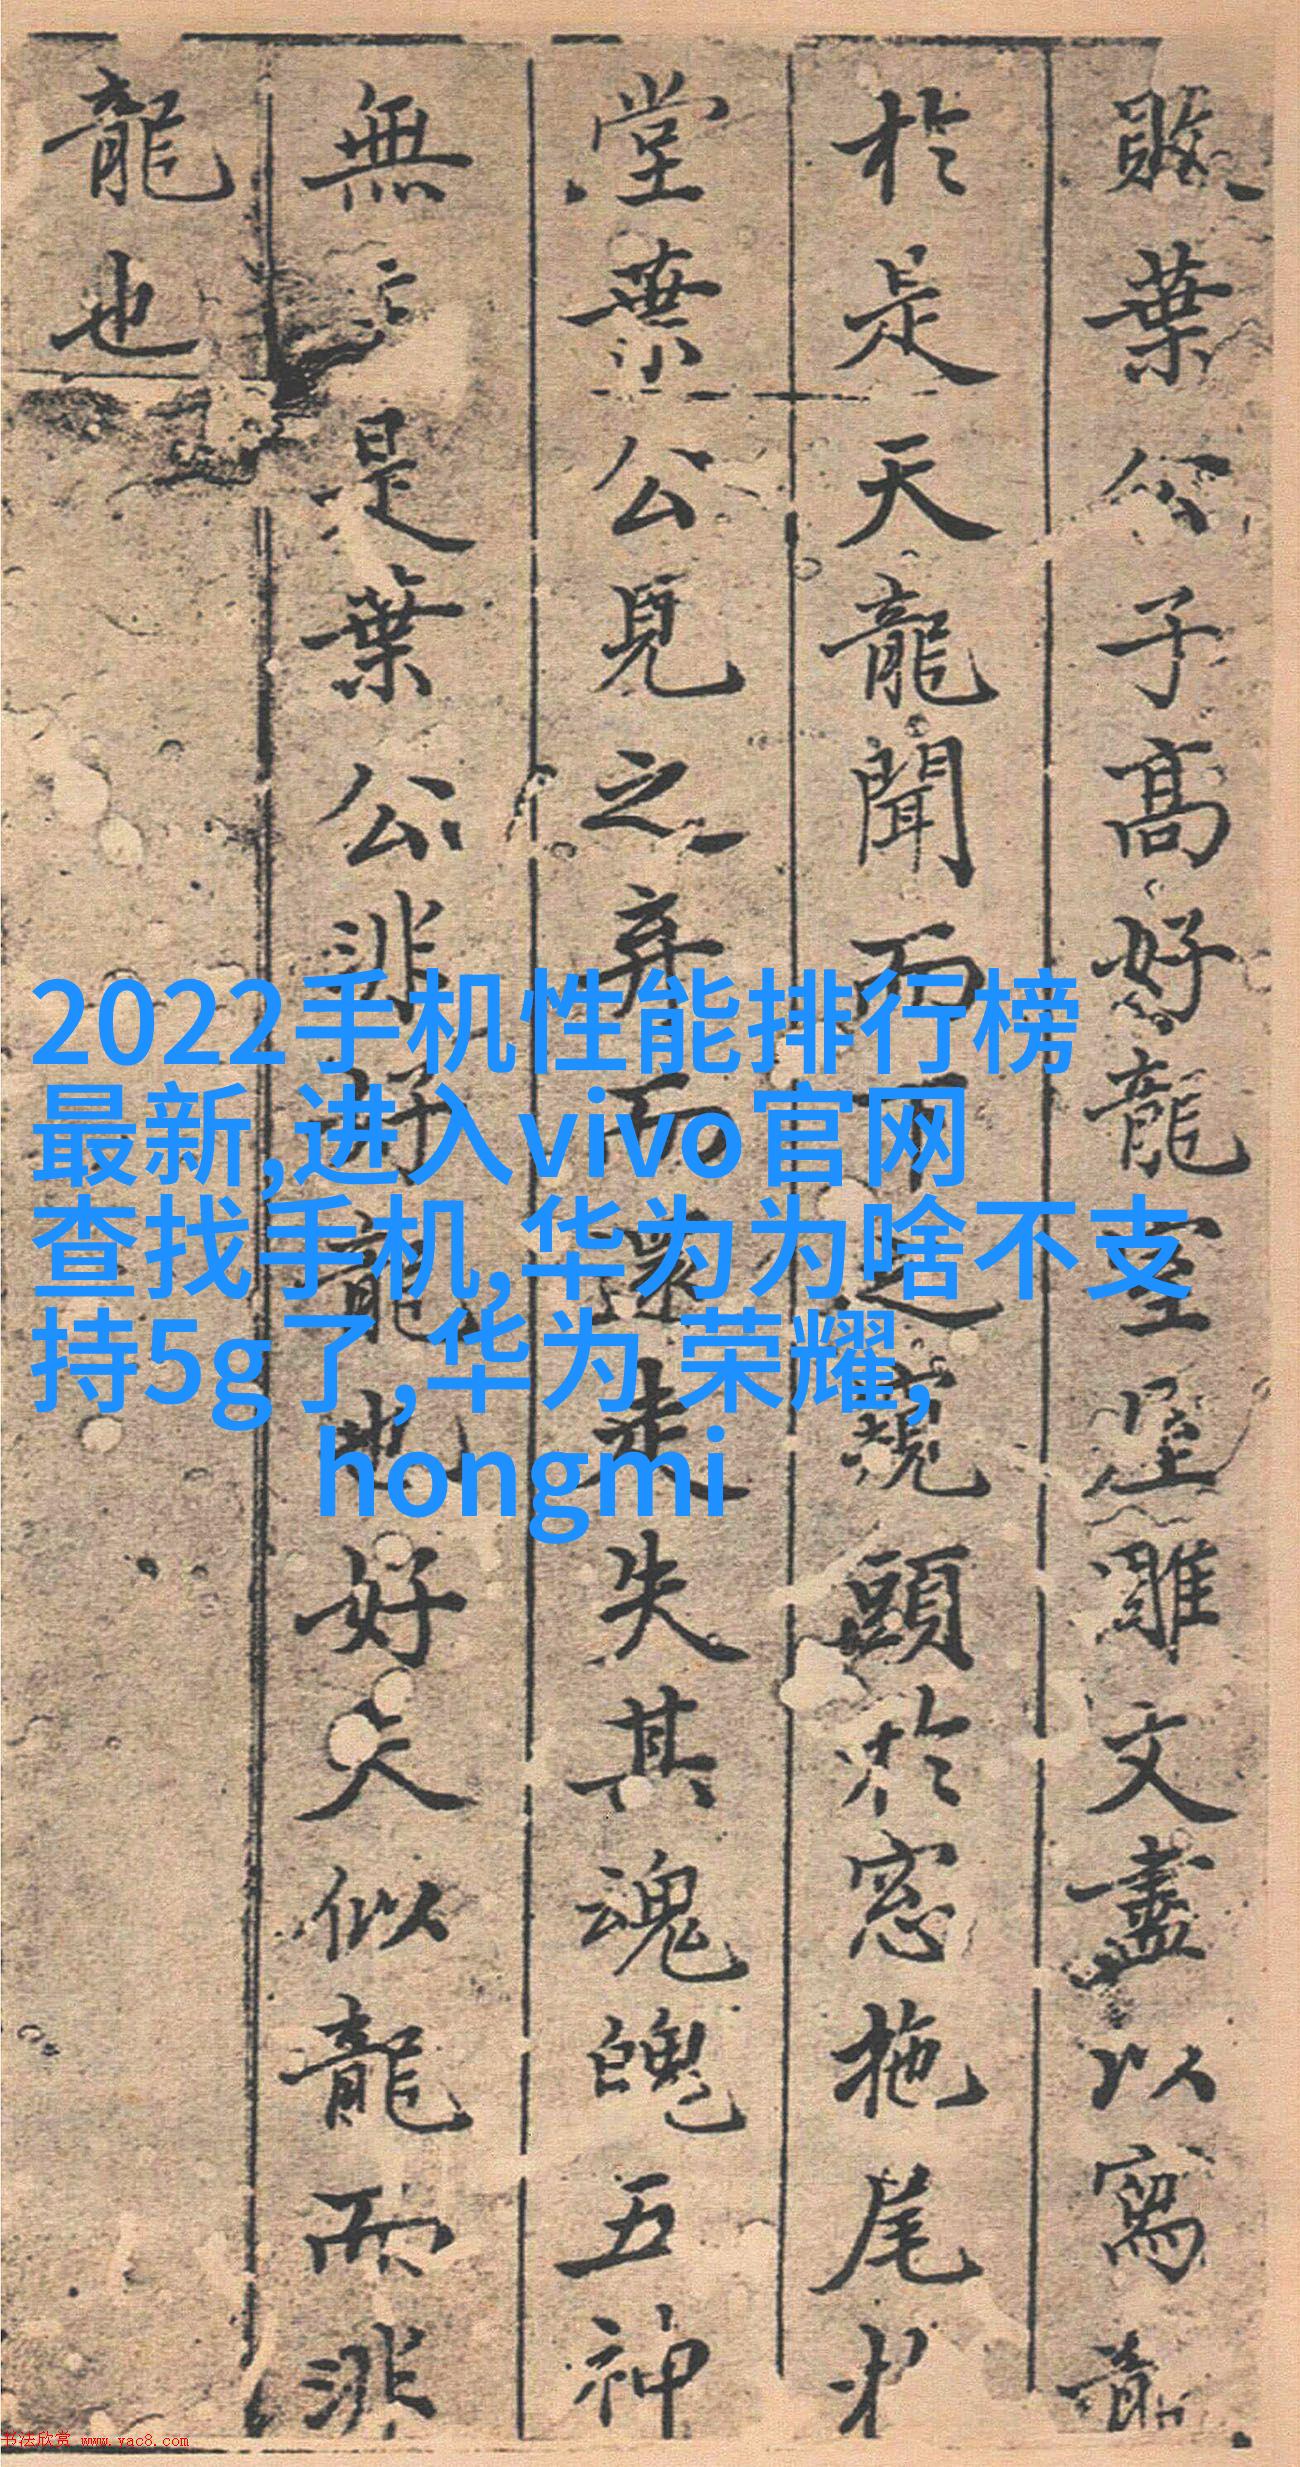 敗葉公子高好龍室屋雕文盡以寫龍
於是天龍聞而下之窺頭於窓拖尾於
堂葉公見之弃而還走失其魂魄五神
無主是葉公非好龍也好夫似龍而非
龍也
2022手机性能排行榜
最新,进入vivo官网
查找手机,华为为啥不支
持5g了,华为 荣耀,
hongmi
书法欣赏 www.yac8.com